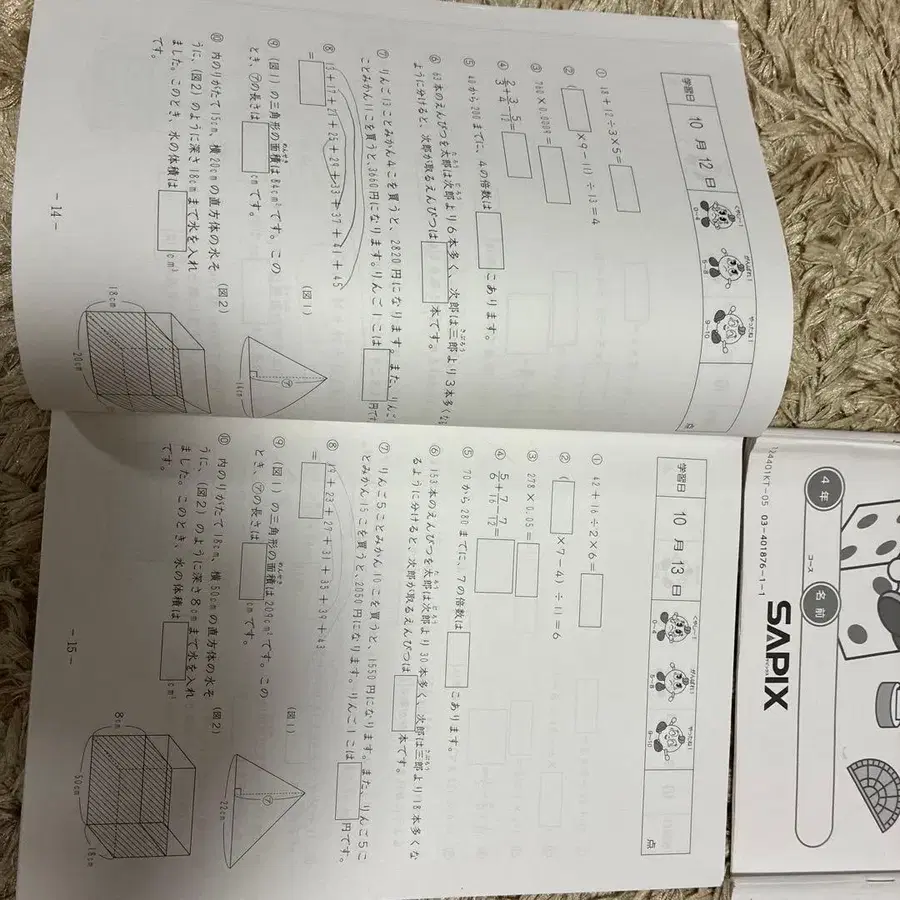 学習日 10月12日
くやしい! 0~4
がんばれ! 5~8
やったね! 9~10
点
① 18+12÷3×5=
② ( ×9-11)÷13=4
③ 760×0.0009=
④ 2/3+3/4-5/12=
⑤ 40から200までに、4の倍数は こあります。
⑥ 63本のえんぴつを太郎は次郎より6本多く、次郎は三郎より3本多くな
ように分けると、次郎が取るえんぴつは 本です。
⑦ りんご13ことみかん4こを買うと、2820円になります。また、りんご
ことみかん11こを買うと、3660円になります。りんご1こは 円で
⑧ 13+17+21+25+29+33+37+41+45
=
⑨ (図1)の三角形の面積は84cm²です。この
とき、㋐の長さは cmです。
(図1)
㋐
14cm
⑩ 内のりがたて15cm、横20cmの直方体の水そ
うに、(図2)のように深さ18cmまで水を入れ
ました。このとき、水の体積は cm³
です。
(図2)
18cm
20cm
-14-
学習日 10月13日
くやしい! 0~4
がんばれ! 5~8
やったね! 9~10
点
① 42+16÷2×6=
② ( ×7-4)÷11=6
③ 278×0.05=
④ 5/6+7/16-7/12=
⑤ 70から280までに、7の倍数は こあります。
⑥ 153本のえんぴつを太郎は次郎より30本多く、次郎は三郎より18本多くな
るように分けると、次郎が取るえんぴつは 本です。
⑦ りんご5ことみかん10こを買うと、1550円になります。また、りんご5こ
とみかん15こを買うと、2050円になります。りんご1こは 円です。
⑧ 19+23+27+31+35+39+43
=
⑨ (図1)の三角形の面積は209cm²です。この
とき、㋐の長さは cmです。
(図1)
㋐
22cm
⑩ 内のりがたて18cm、横50cmの直方体の水そ
うに、(図2)のように深さ8cmまで水を入れ
ました。このとき、水の体積は cm³
です。
(図2)
8cm
50cm
18cm
-15-
124401KT-05 03-401876-1-1
4年
コース
名前
SAPIX